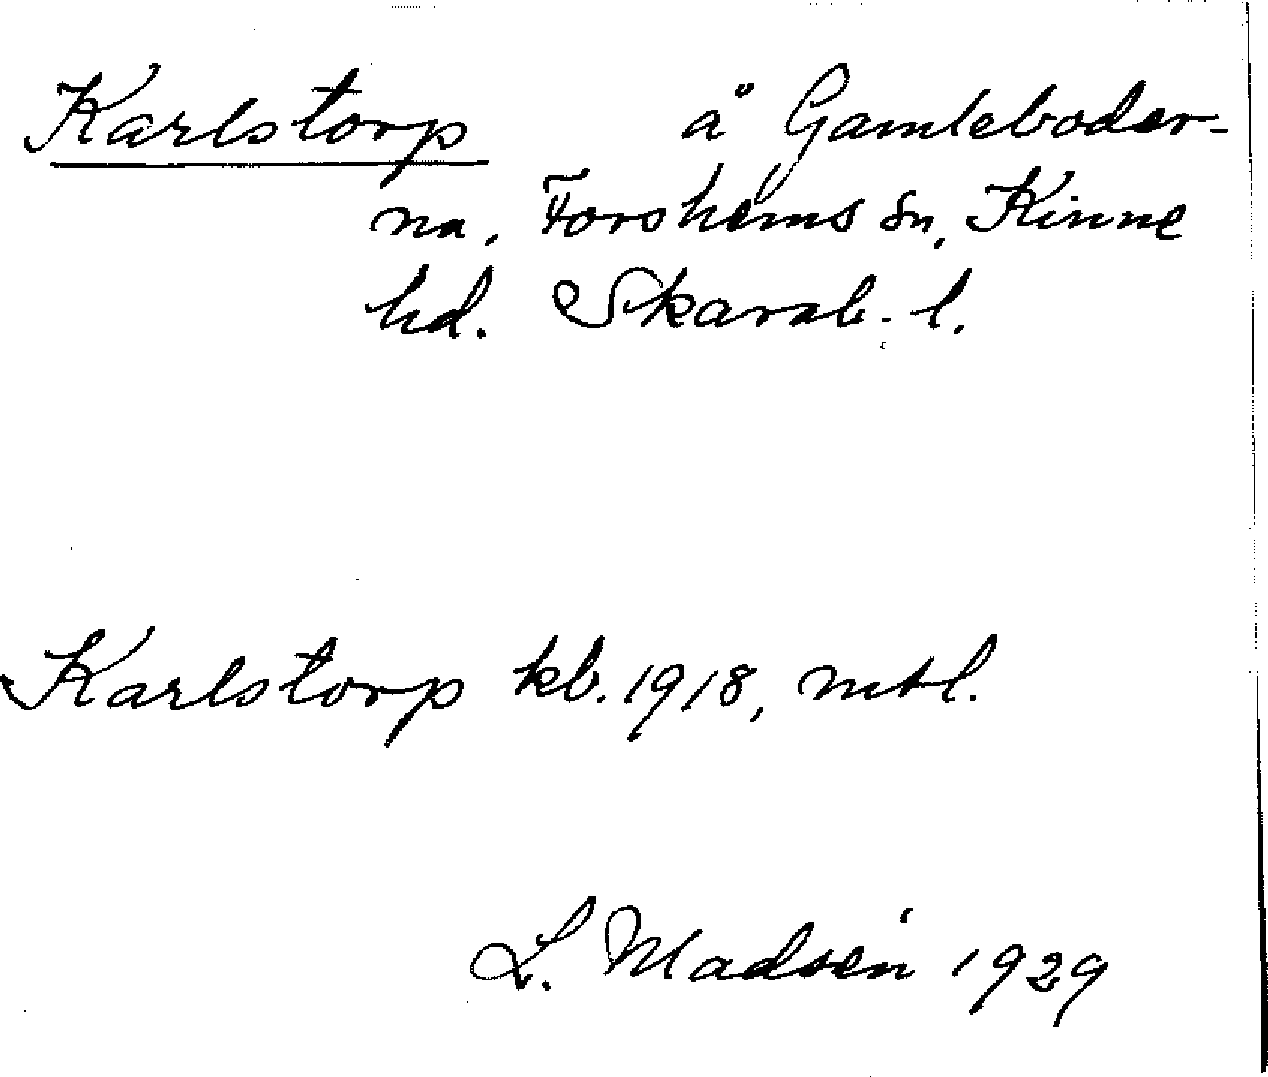 Karlstorp å Gamleboder-
na, Forshems sn, Kinne
hd. Skarab. l.
Karlstorp kb. 1918, mtl.
L. Madsén 1929